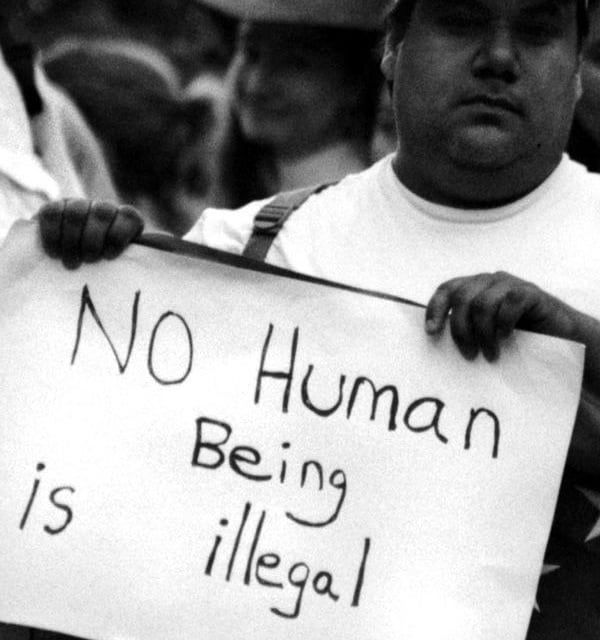 NO Human
Being
is illegal